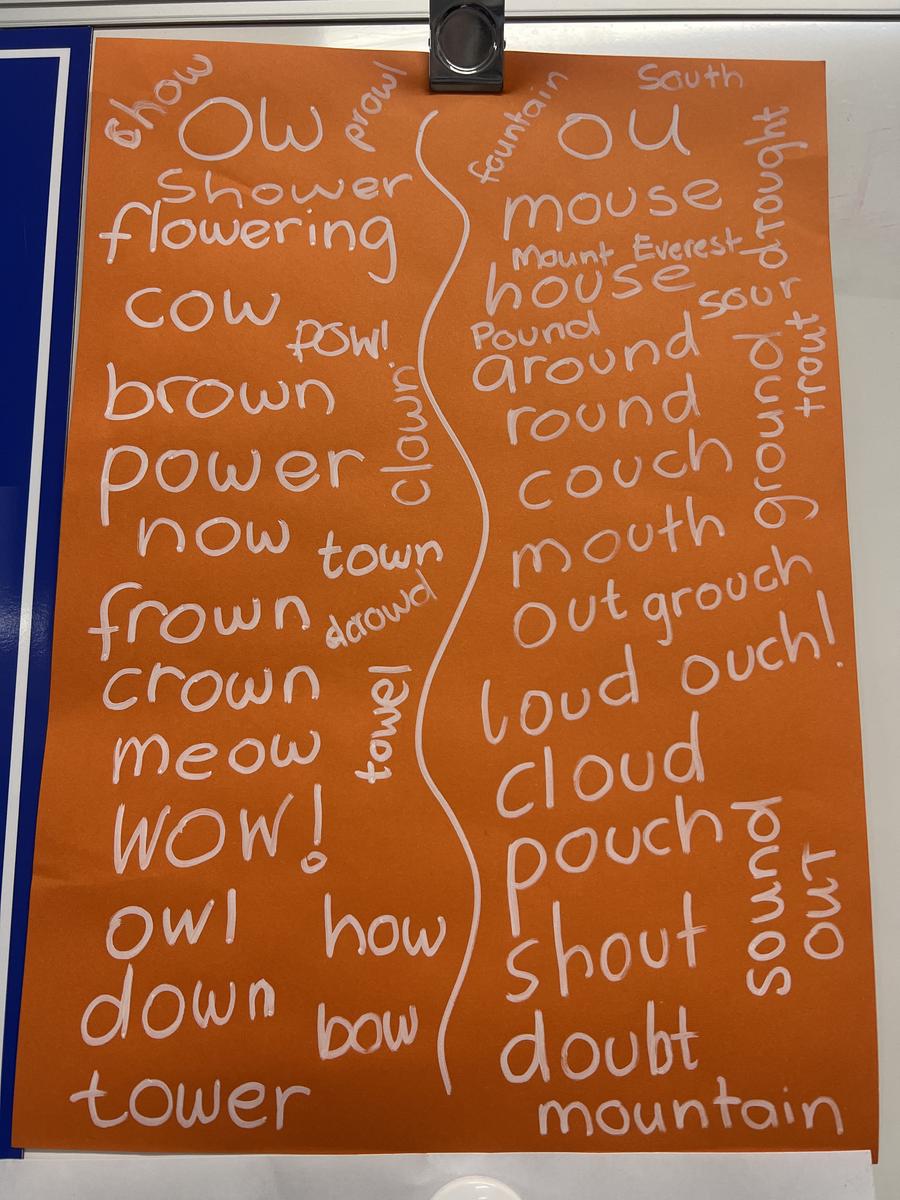 show
prowl
ow
shower
flowering
cow
pow!
brown
clown
power
now
town
frown
crowd
crown
towel
meow
WOW!
owl
how
down
bow
tower
fountain
South
ou
drought
mouse
Mount Everest
house
sour
Pound
trout
around
ground
round
couch
mouth
out
grouch
loud
ouch!
cloud
pouch
sound
out
shout
doubt
mountain